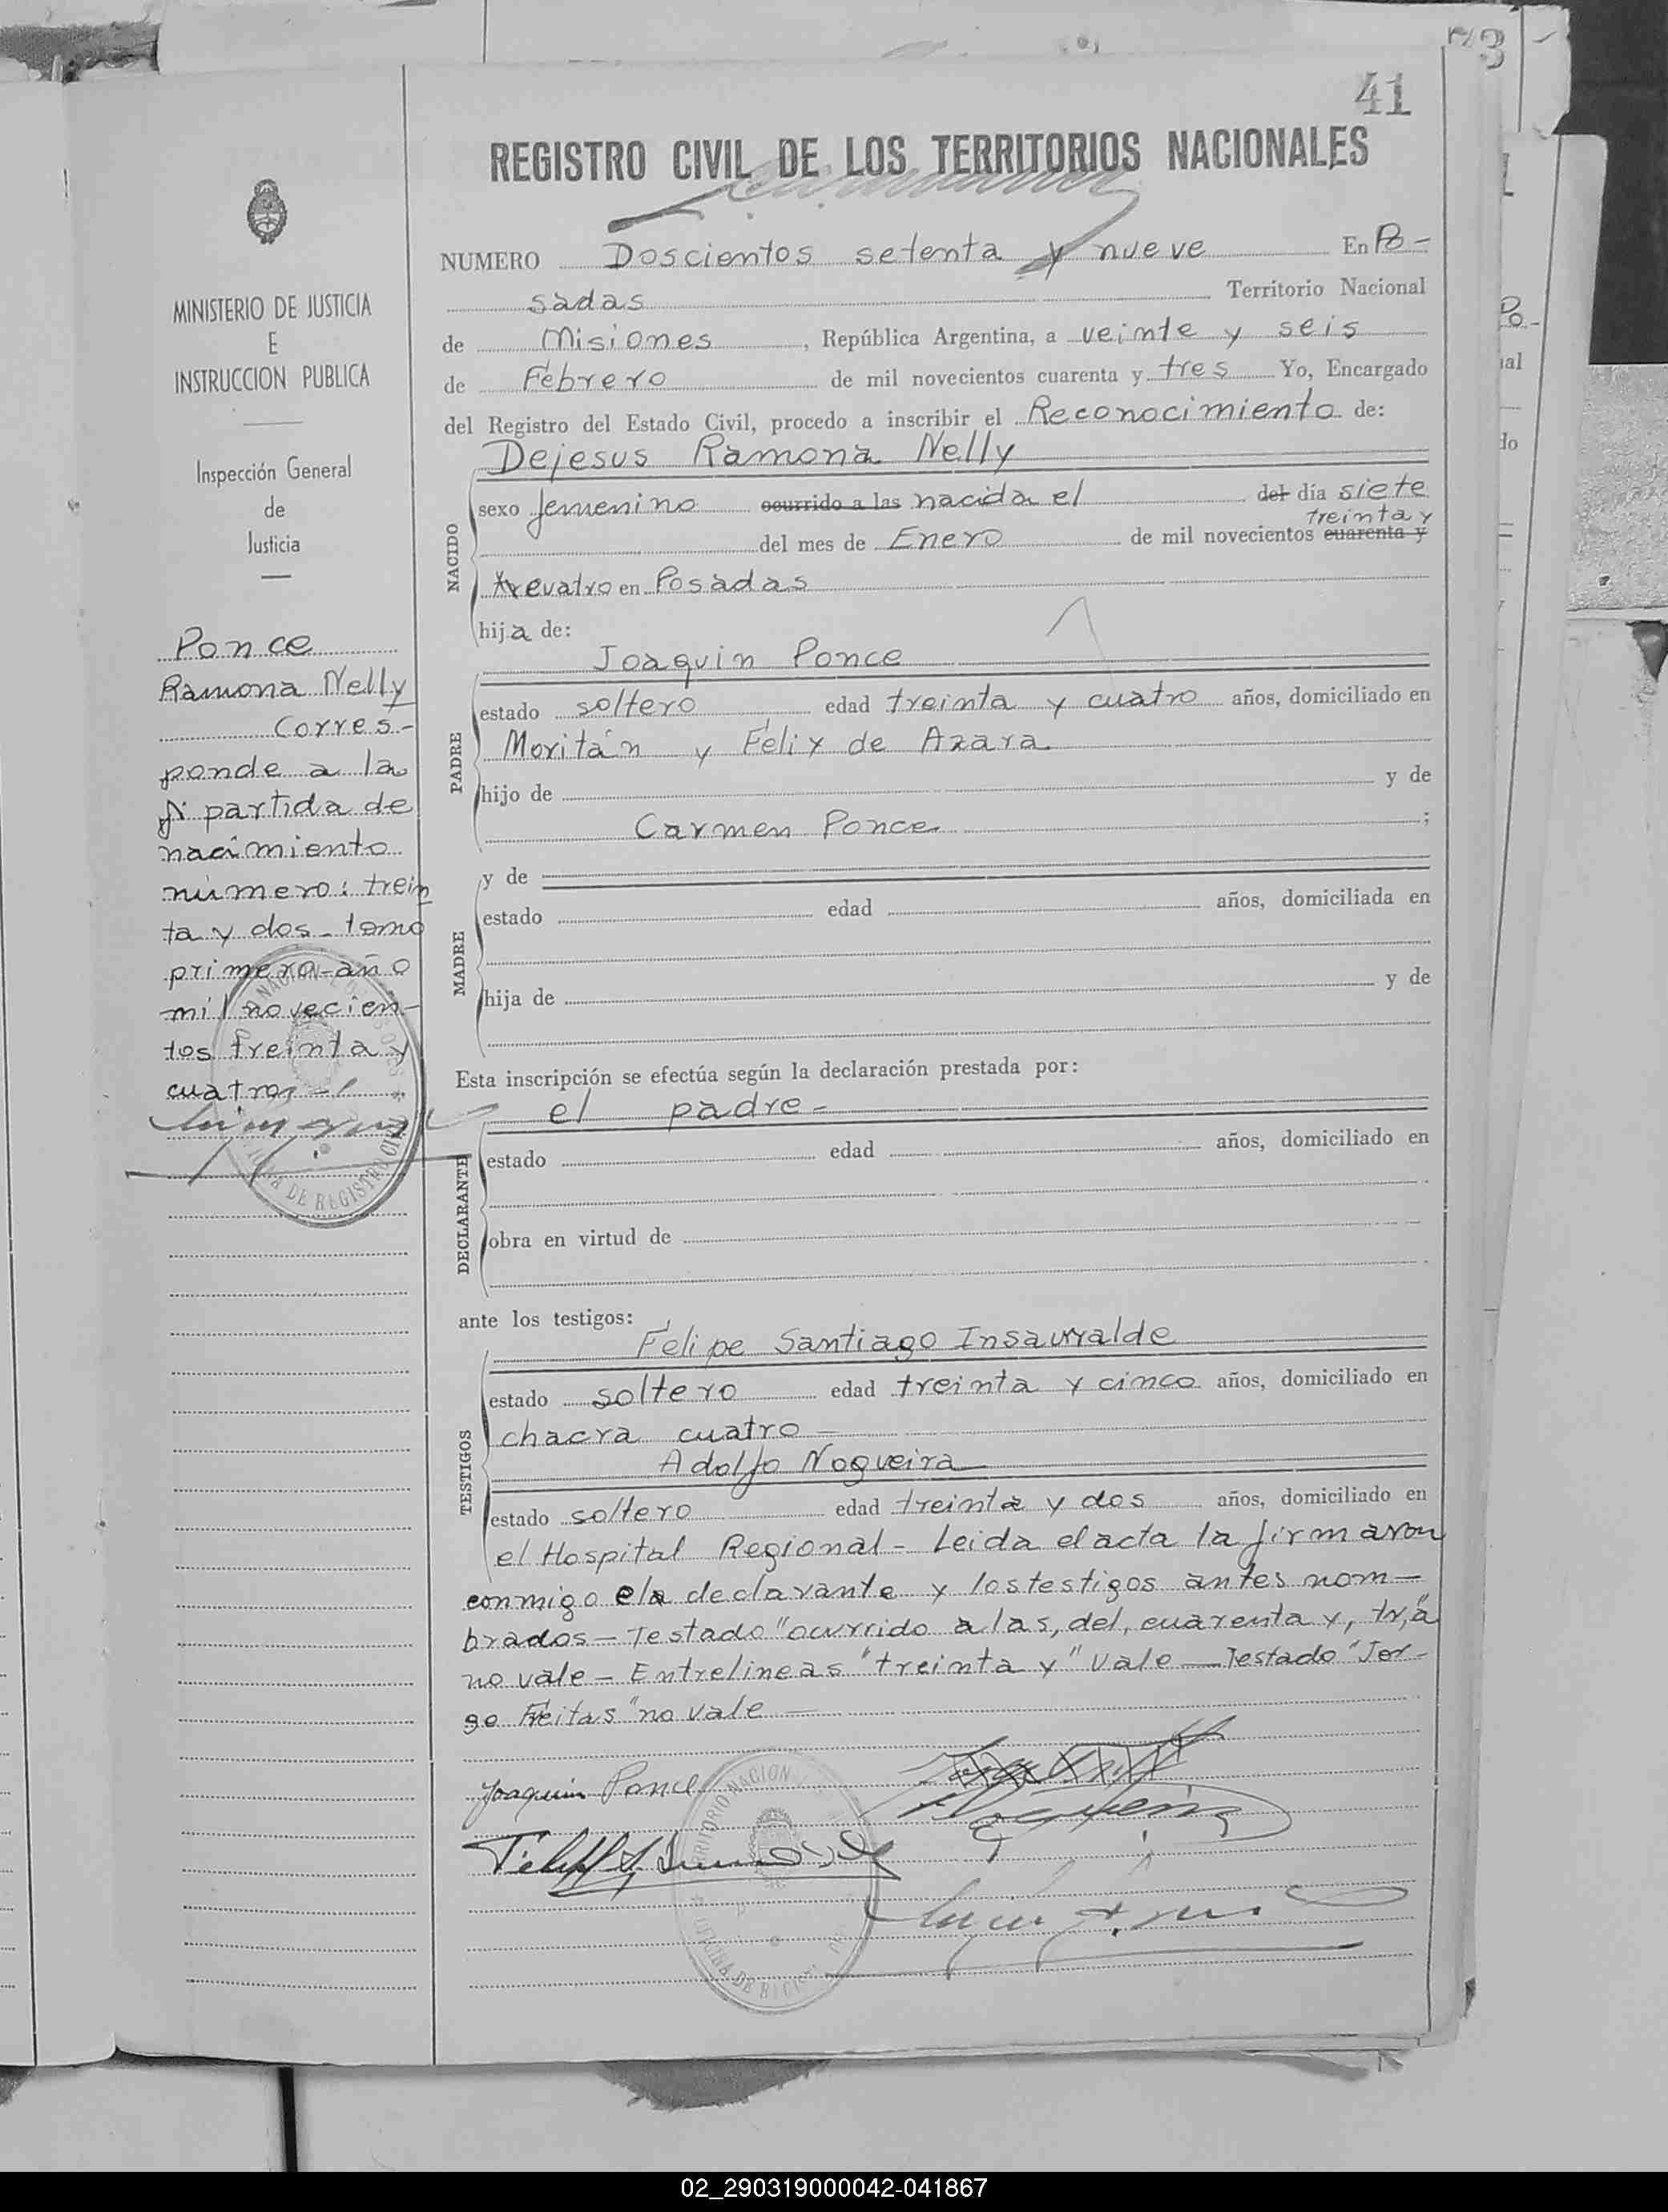 73
41
REGISTRO CIVIL DE LOS TERRITORIOS NACIONALES
NUMERO Doscientos setenta y nueve En Po-
sadas Territorio Nacional
de Misiones, República Argentina, a veinte y seis
de Febrero de mil novecientos cuarenta y tres Yo, Encargado
del Registro del Estado Civil, procedo a inscribir el Reconocimiento de:
Dejesus Ramona Nelly
NACIDO
sexo femenino ocurrido a las nacida el del día siete
treinta y
del mes de Enero de mil novecientos cuarenta y
cuatro en Posadas
hija de:
Joaquin Ponce
PADRE
estado soltero edad treinta y cuatro años, domiciliado en
Moritán y Félix de Azara
hijo de y de
Carmen Ponce ;
MADRE
y de
estado edad años, domiciliada en
hija de y de
Esta inscripción se efectúa según la declaración prestada por:
el padre-
DECLARANTE
estado edad años, domiciliado en
obra en virtud de
ante los testigos:
Felipe Santiago Insaurralde
TESTIGOS
estado soltero edad treinta y cinco años, domiciliado en
chacra cuatro
Adolfo Nogueira
estado soltero edad treinta y dos años, domiciliado en
el Hospital Regional - Leida el acta la firmaron
conmigo el declarante y los testigos antes nom-
brados - Testado "ocurrido a las, del, cuarenta y, tr, a"
no vale - Entrelineas "treinta y" vale - Testado "Jor-
ge Freitas" no vale
Joaquin Ponce
MINISTERIO DE JUSTICIA
E
INSTRUCCION PUBLICA
Inspección General
de
Justicia
Ponce
Ramona Nelly
Corres-
ponde a la
partida de
nacimiento
número: trein
ta y dos - tomo
primero - año
mil novecien-
tos treinta y
cuatro
02_290319000042-041867